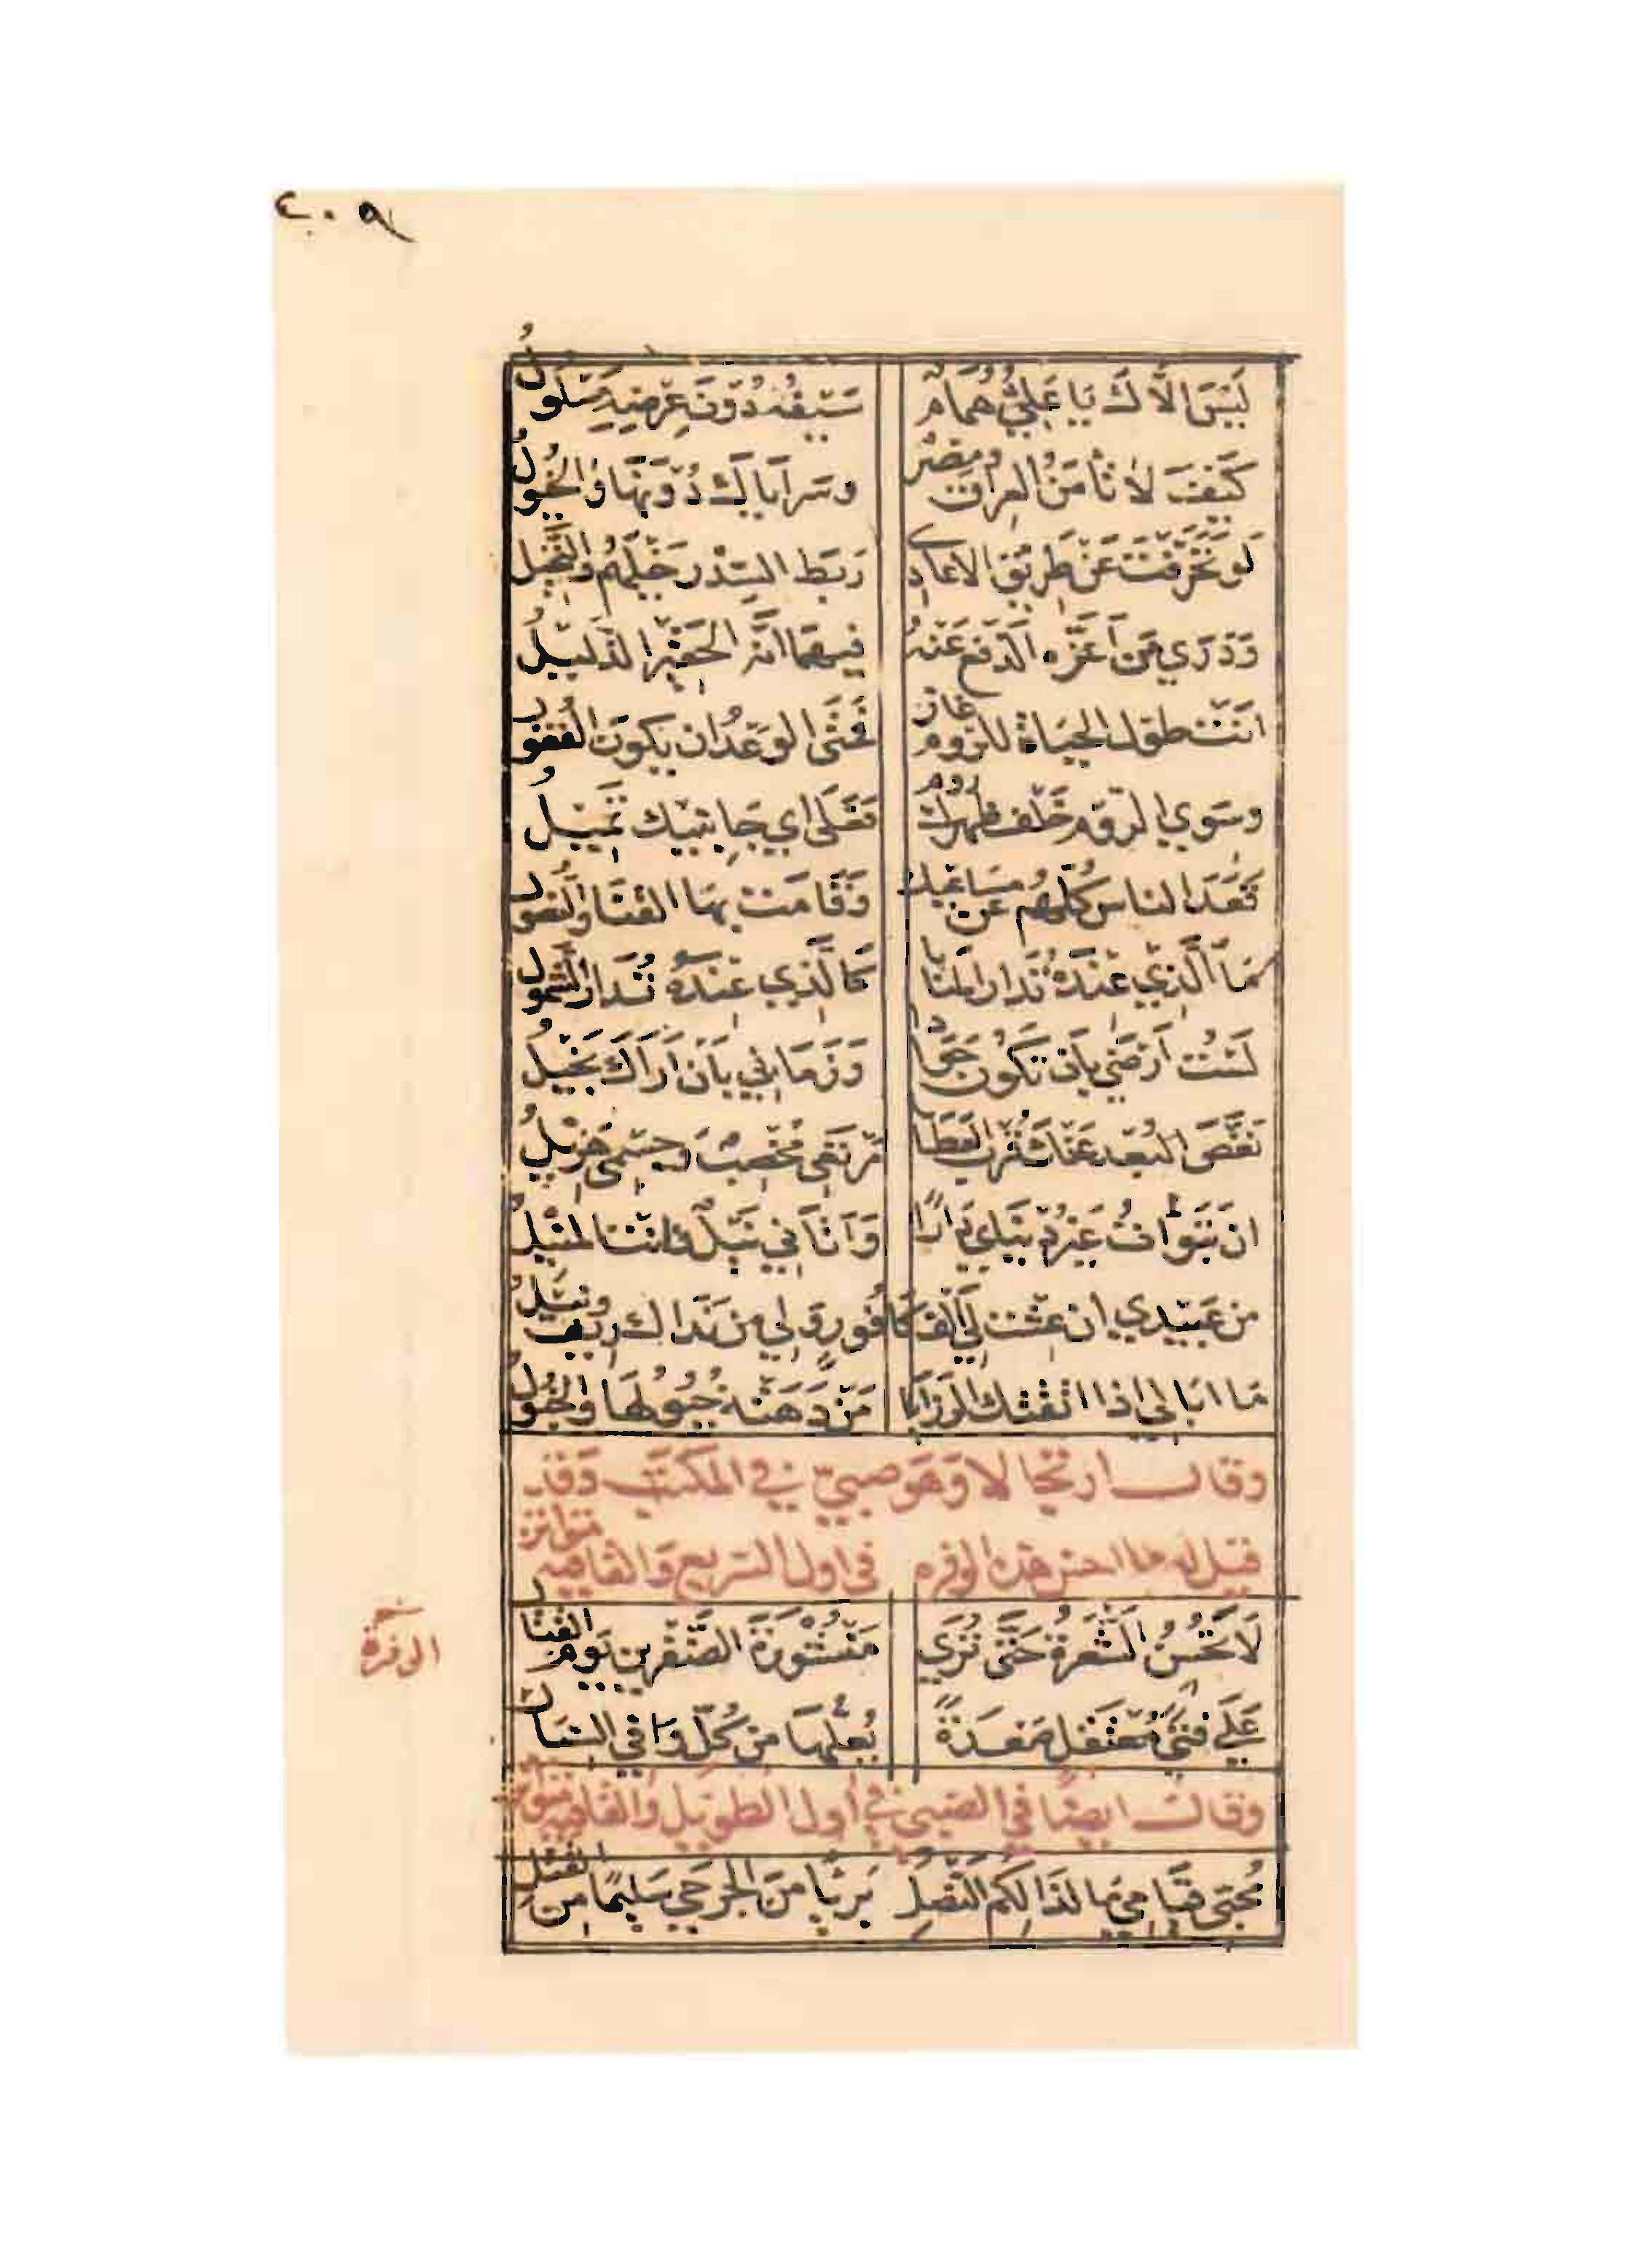 ٢٠٩
لَيْسَ الَّاكَ يَا عَلِيُّ هُمَامٌ سَيْفُهُ دُوْنَ عِرْضِهِ مَسْلُولُ
كَيْفَ لَا تَأمَنُ العراق ومِصْرُ وسَرايَاكَ دُوْنَهَا وَالخُيُولُ
لَو تَحَرَّفْتَ عَنْ طَرِيْقِ الاعادِي رَبَطَ السِّدْرُ خَيْلَهُمْ وَالنَّخِيلُ
وَدَرَي مَنْ اَعَزَّهُ الدَّفْعُ عَنْهُ فِيهِمَا انَّهُ الحَقْيْرُ الذَّلِيْلُ
انْتَ طولَ الحَيَاةِ للرّوم غَازٍ فَمَتَى الوَعْدُ ان يكونَ القُفُولُ
وسِوَي الرّوْمِ خَلْفَ ظهرك رُومٌ فَعَلَى اي جَانِبَيْكَ تَمِيْلُ
قَعَدَ الناسُ كُلُّهُم عن مَسَاعِيك وَقَامَتْ بِهَا القَنَا وَالنُّصُولُ
مَا الَّذِي عِنْدَهُ تُدَار المنَايَا كَالَّذِي عِنْدَهُ تُدَارُ الشَّمُولُ
لَسْتُ اَرْضَي بِاَن تكُونَ جَوَادًا وَزَمَاني بِاَنْ اَرَاكَ بَخِيْلُ
نَغَّصَ البُعْد عَنْكَ قُرْبَ العَطَايَا مَرْتَعِي مُخْصِبٌ وجِسْمي هَزِيْلُ
ان تَبَوَّاتُ غَيْرَ دُنْيَايَ دَارًا وَاَتَانِي نَيْلٌ فانْتَ المُنِيْلُ
من عَبِيْدِي ان عِشْتَ لِي اَلْفُ كَافُورٍ وَلِي مِنْ نَدَاكَ رِيفٌ ونِيْلُ
مَا ابَالي اذا اتَّقَتْكَ الرَزَايَا مَنْ دَهَتْهُ خُيُولُهَا وَالخُبُولُ
وقالـــ ارتجالا وَهَوَ صبيٌّ في المكتَبِ وَقَد
قيل له ما احسن هذه الوفره في اول السّريع وَالقافيه متواتر
الوفرة
لَا تَحْسُنُ الشَّعْرَةُ حَتَّى تُرَي مَنْشُوْرَةَ الضَّفْرَيْنِ يَوْمَ القِتَال
عَلَى فَتًى مُعْتَقِلٍ صَعْدَةً يُعِلُّهَا مِنْ كُلِّ وَافِي السِّبَالْ
وَقالَـ ايضًا في الصبي في أول الطويل وَالقافيه متواتر
مُحِبّى قيَامِي مَا لذَالِكُم النَّصْلِ بَرِيًّا مِنَ الجَرْحَي سَلِيمًا مِنَ القَتْلِ